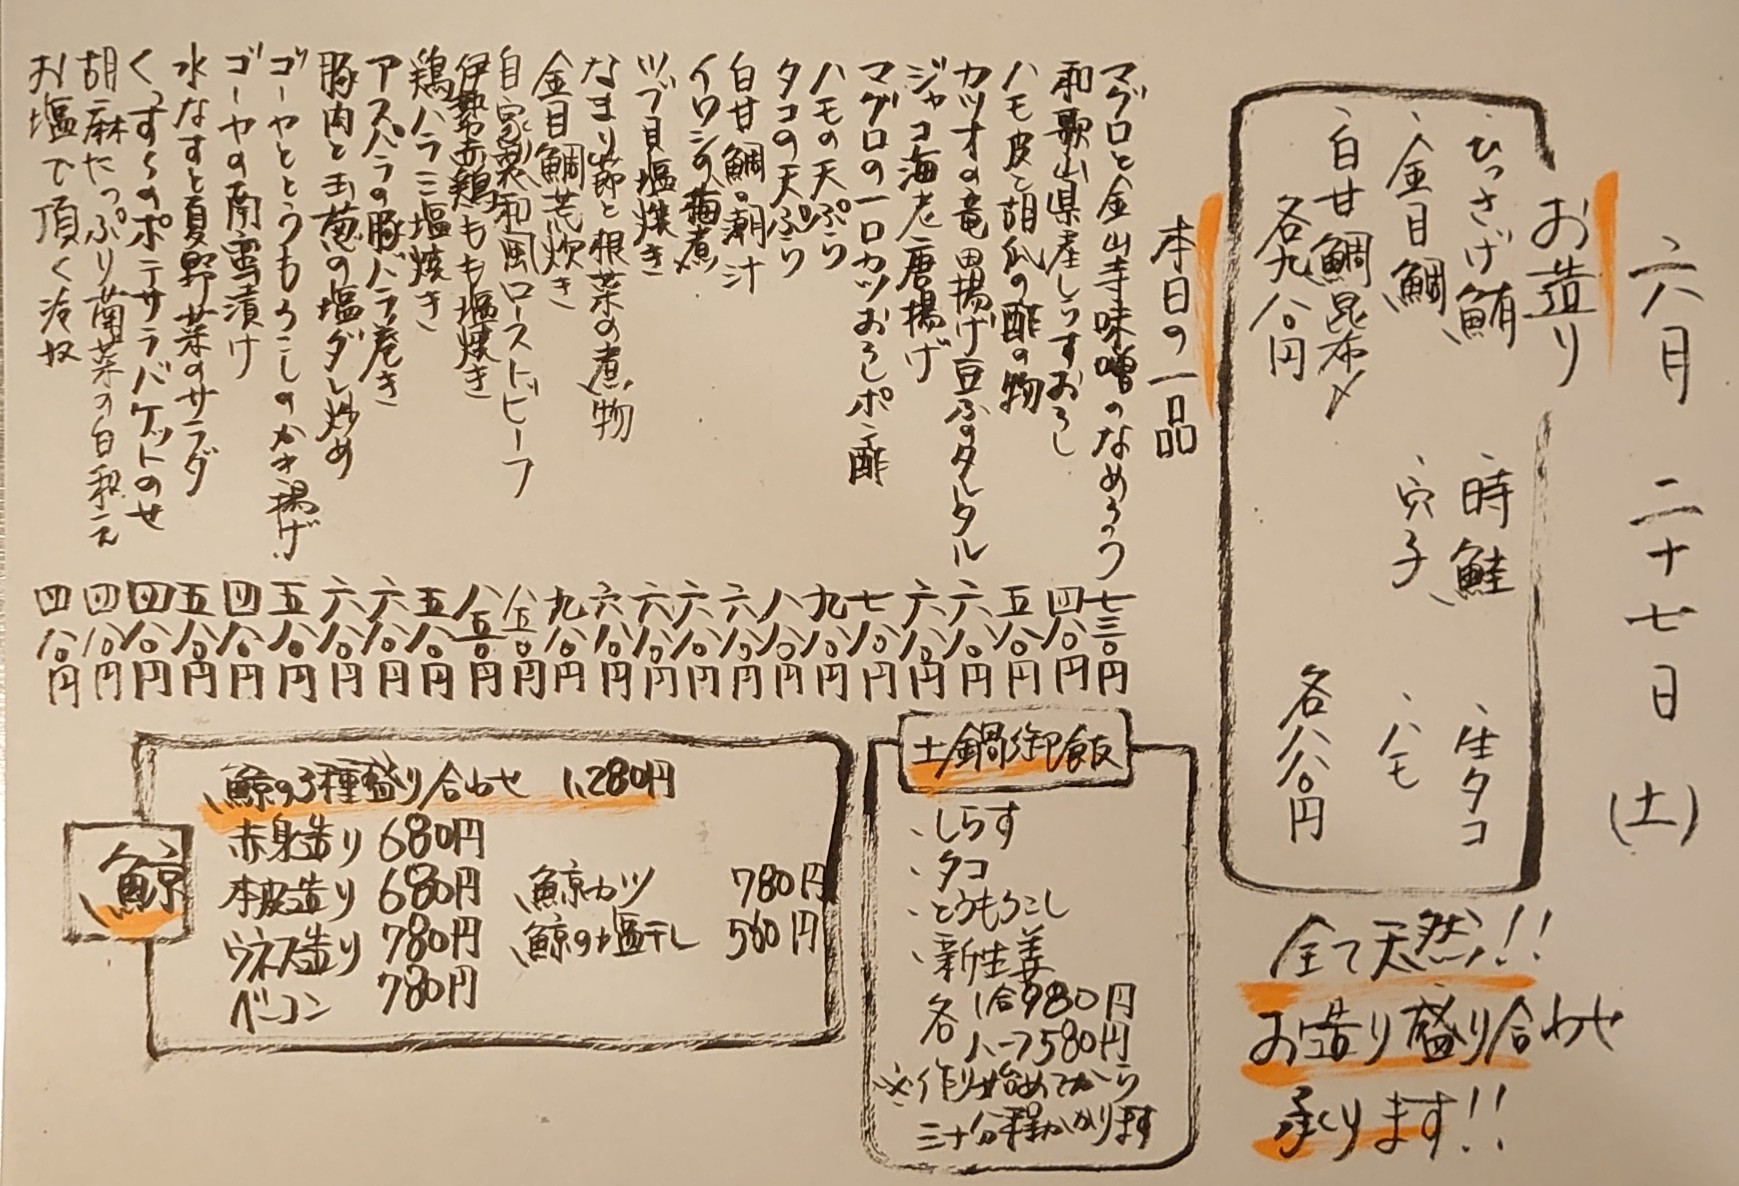 六月二十七日(土)
お造り
・ひっさげ鮪
・時鮭
・生タコ
・金目鯛
・穴子
・ハモ
・白甘鯛昆布〆
各九八〇円
各八八〇円
全て天然!!
お造り盛り合わせ
承ります!!
本日の一品
マグロと金山寺味噌のなめろう 七三〇円
和歌山県産しらすおろし 四八〇円
ハモ皮と胡瓜の酢の物 五八〇円
カツオの竜田揚げ豆ふのタルタル 六八〇円
ジャコ海老唐揚げ 六八〇円
マグロの一口カツおろしポン酢 七八〇円
ハモの天ぷら 九八〇円
タコの天ぷら 八八〇円
白甘鯛の潮汁 六八〇円
イワシの梅煮 六八〇円
ツブ貝塩焼き 六八〇円
なまり節と根菜の煮物 六八〇円
金目鯛荒炊き 九八〇円
自家製和風ローストビーフ 八五〇円
伊勢赤鶏もも塩焼き 八五〇円
鶏ハラミ塩焼き 五八〇円
アスパラの豚バラ巻き 六八〇円
豚肉と玉葱の塩ダレ炒め 六八〇円
ゴーヤととうもろこしのかき揚げ 五八〇円
ゴーヤの南蛮漬け 四八〇円
水なすと夏野菜のサラダ 五八〇円
くんすらのポテサラバケットのせ 四八〇円
胡麻たっぷり菌菜の白和え 四八〇円
お塩で頂く冷奴 四八〇円
土鍋御飯
・しらす
・タコ
・とうもろこし
・新生姜
各 1合980円
ハーフ580円
※作り始めてから
三十分程かかります
鯨
鯨の3種盛り合わせ 1,280円
赤身造り 680円
本皮造り 680円
ウネス造り 780円
ベーコン 780円
鯨カツ 780円
鯨の塩干し 560円